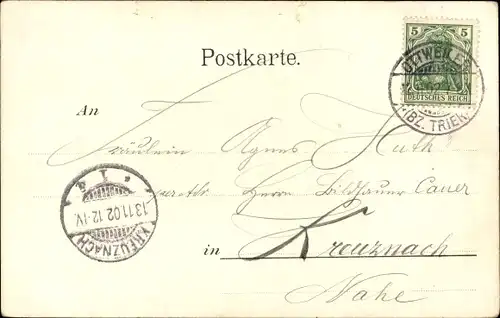 5 5
DEUTSCHES REICH
OTTWEILER
(BZ. TRIER)
Postkarte.
An
Fräulein Agnes Huth
Herrn Bildhauer Cauer
in Kreuznach
Nahe
KREUZNACH
13.11.02. 12-1V.